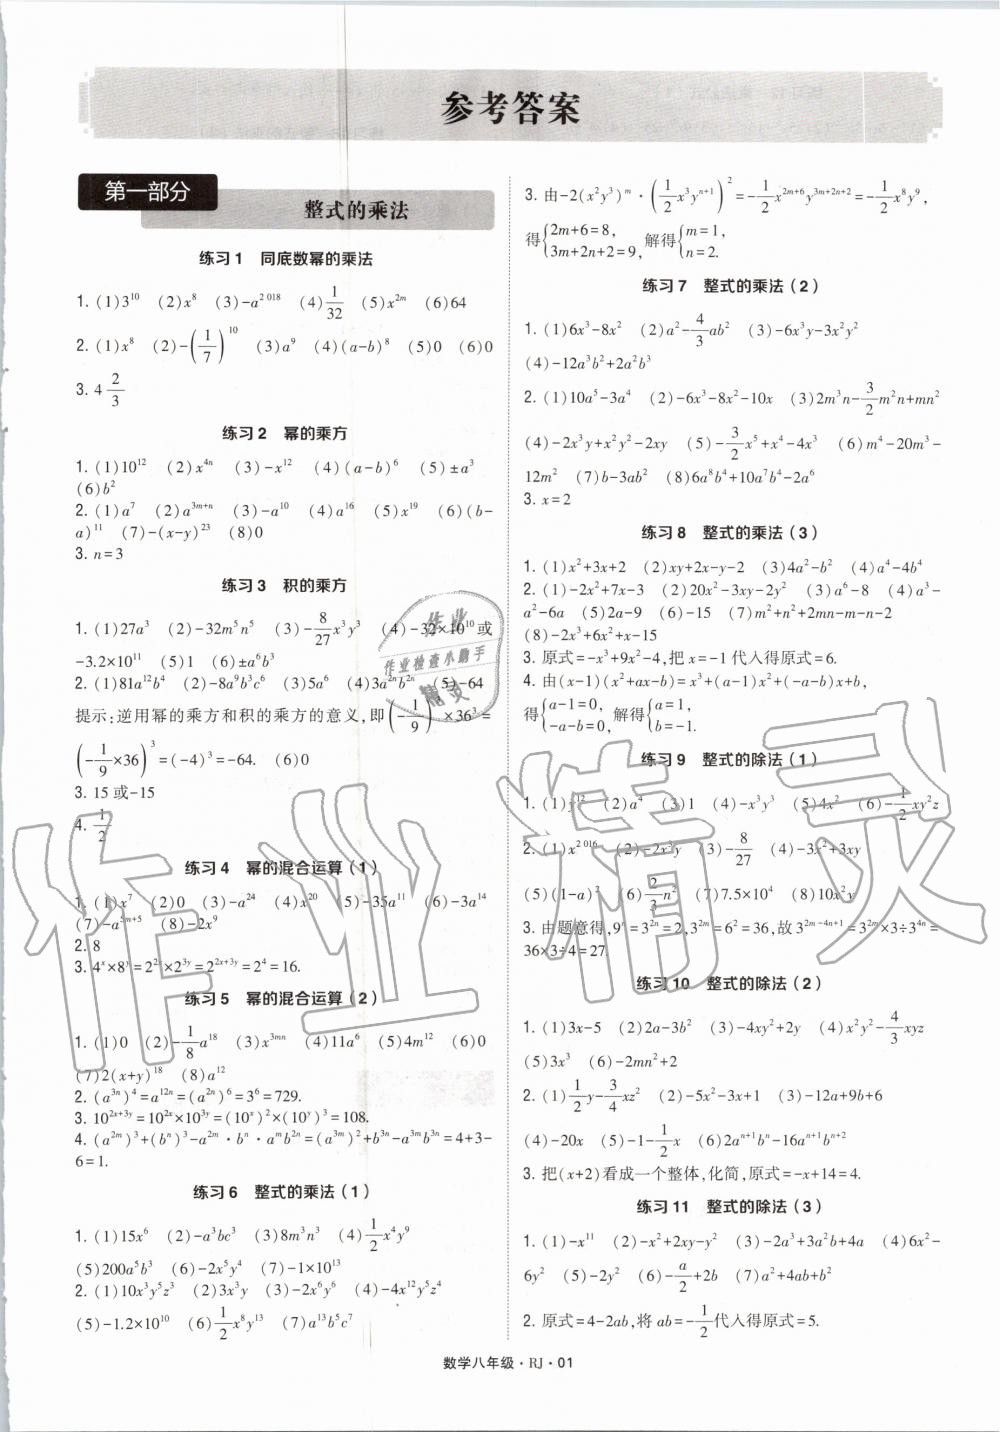 参考答案
第一部分
整式的乘法
练习1 同底数幂的乘法
1. (1)3^10 (2)x^8 (3)-a^2 018 (4)1/32 (5)x^2m (6)64
2. (1)x^8 (2)-(1/7)^10 (3)a^9 (4)(a-b)^8 (5)0 (6)0
3. 4 2/3
练习2 幂的乘方
1. (1)10^12 (2)x^4n (3)-x^12 (4)(a-b)^6 (5)±a^3
(6)b^2
2. (1)a^7 (2)a^(3m+n) (3)-a^10 (4)a^16 (5)x^19 (6)(b-
a)^11 (7)-(x-y)^23 (8)0
3. n=3
练习3 积的乘方
1. (1)27a^3 (2)-32m^5n^5 (3)-8/27x^3y^3 (4)-32×10^10或
-3.2×10^11 (5)1 (6)±a^6b^3
2. (1)81a^12b^4 (2)-8a^9b^3c^6 (3)5a^6 (4)3a^2nb^2n (5)-64
提示:逆用幂的乘方和积的乘方的意义,即(-1/9)^3×36^3=
(-1/9×36)^3=(-4)^3=-64. (6)0
3. 15或-15
4. 1/2
练习4 幂的混合运算(1)
1. (1)x^7 (2)0 (3)-a^24 (4)x^20 (5)-35a^11 (6)-3a^14
(7)-a^(5m+5) (8)-2x^9
2. 8
3. 4^x×8^y=2^2x×2^3y=2^(2x+3y)=2^4=16.
练习5 幂的混合运算(2)
1. (1)0 (2)-1/8a^18 (3)x^3mn (4)11a^6 (5)4m^12 (6)0
(7)2(x+y)^18 (8)a^12
2. (a^3n)^4=a^12n=(a^2n)^6=3^6=729.
3. 10^(2x+3y)=10^2x×10^3y=(10^x)^2×(10^y)^3=108.
4. (a^2m)^3+(b^n)^3-a^2m·b^n·a^mb^2n=(a^3m)^2+b^3n-a^3mb^3n=4+3-
6=1.
练习6 整式的乘法(1)
1. (1)15x^6 (2)-a^3bc^3 (3)8m^3n^3 (4)1/2x^4y^9
(5)200a^5b^3 (6)-2x^5y^4 (7)-1×10^13
2. (1)10x^3y^5z^3 (2)3x^3y (3)-2x^6y^6 (4)-4x^12y^5z^4
(5)-1.2×10^10 (6)1/2x^8y^13 (7)a^13b^5c^7
3. 由-2(x^2y^3)^m·(1/2x^3y^(n+1))^2=-1/2x^(2m+6)y^(3m+2n+2)=-1/2x^8y^9,
得{2m+6=8, 3m+2n+2=9,解得{m=1, n=2.
练习7 整式的乘法(2)
1. (1)6x^3-8x^2 (2)a^2-4/3ab^2 (3)-6x^3y-3x^2y^2
(4)-12a^3b^2+2a^2b^3
2. (1)10a^5-3a^4 (2)-6x^3-8x^2-10x (3)2m^3n-3/2m^2n+mn^2
(4)-2x^3y+x^2y^2-2xy (5)-3/2x^5+x^4-4x^3 (6)m^4-20m^3-
12m^2 (7)b-3ab^2 (8)6a^8b^4+10a^7b^4-2a^6
3. x=2
练习8 整式的乘法(3)
1. (1)x^2+3x+2 (2)xy+2x-y-2 (3)4a^2-b^2 (4)a^4-4b^4
2. (1)-2x^2+7x-3 (2)20x^2-3xy-2y^2 (3)a^6-8 (4)a^3-
a^2-6a (5)2a-9 (6)-15 (7)m^2+n^2+2mn-m-n-2
(8)-2x^3+6x^2+x-15
3. 原式=-x^3+9x^2-4,把x=-1代入得原式=6.
4. 由(x-1)(x^2+ax-b)=x^3+(a-1)x^2+(-a-b)x+b,
得{a-1=0, -a-b=0,解得{a=1, b=-1.
练习9 整式的除法(1)
1. (1)y^12 (2)a^4 (3)1 (4)-x^3y^3 (5)4x^2 (6)-1/2xy^2z
2. (1)x^2 016 (2)-2x^3y (3)-8/27 (4)-3x^2+3xy
(5)(1-a)^2 (6)2/3n^2 (7)7.5×10^4 (8)10x^2y
3. 由题意得,9^n=3^2n=2,3^2m=6^2=36,故3^(2m-4n+1)=3^2m×3÷3^4n=
36×3÷4=27.
练习10 整式的除法(2)
1. (1)3x-5 (2)2a-3b^2 (3)-4xy^2+2y (4)x^2y^2-4/3xyz
(5)3x^3 (6)-2mn^2+2
2. (1)1/2y-3/4xz^2 (2)-5x^2-3x+1 (3)-12a+9b+6
(4)-20x (5)-1-1/2x (6)2a^(n+1)b^n-16a^(n+1)b^(n+2)
3. 把(x+2)看成一个整体,化简,原式=-x+14=4.
练习11 整式的除法(3)
1. (1)-x^11 (2)-x^2+2xy-y^2 (3)-2a^3+3a^2b+4a (4)6x^2-
6y^2 (5)-2y^2 (6)-a/2+2b (7)a^2+4ab+b^2
2. 原式=4-2ab,将ab=-1/2代入得原式=5.
数学八年级·RJ·01
作业
作业检查小助手
精灵
作业精灵